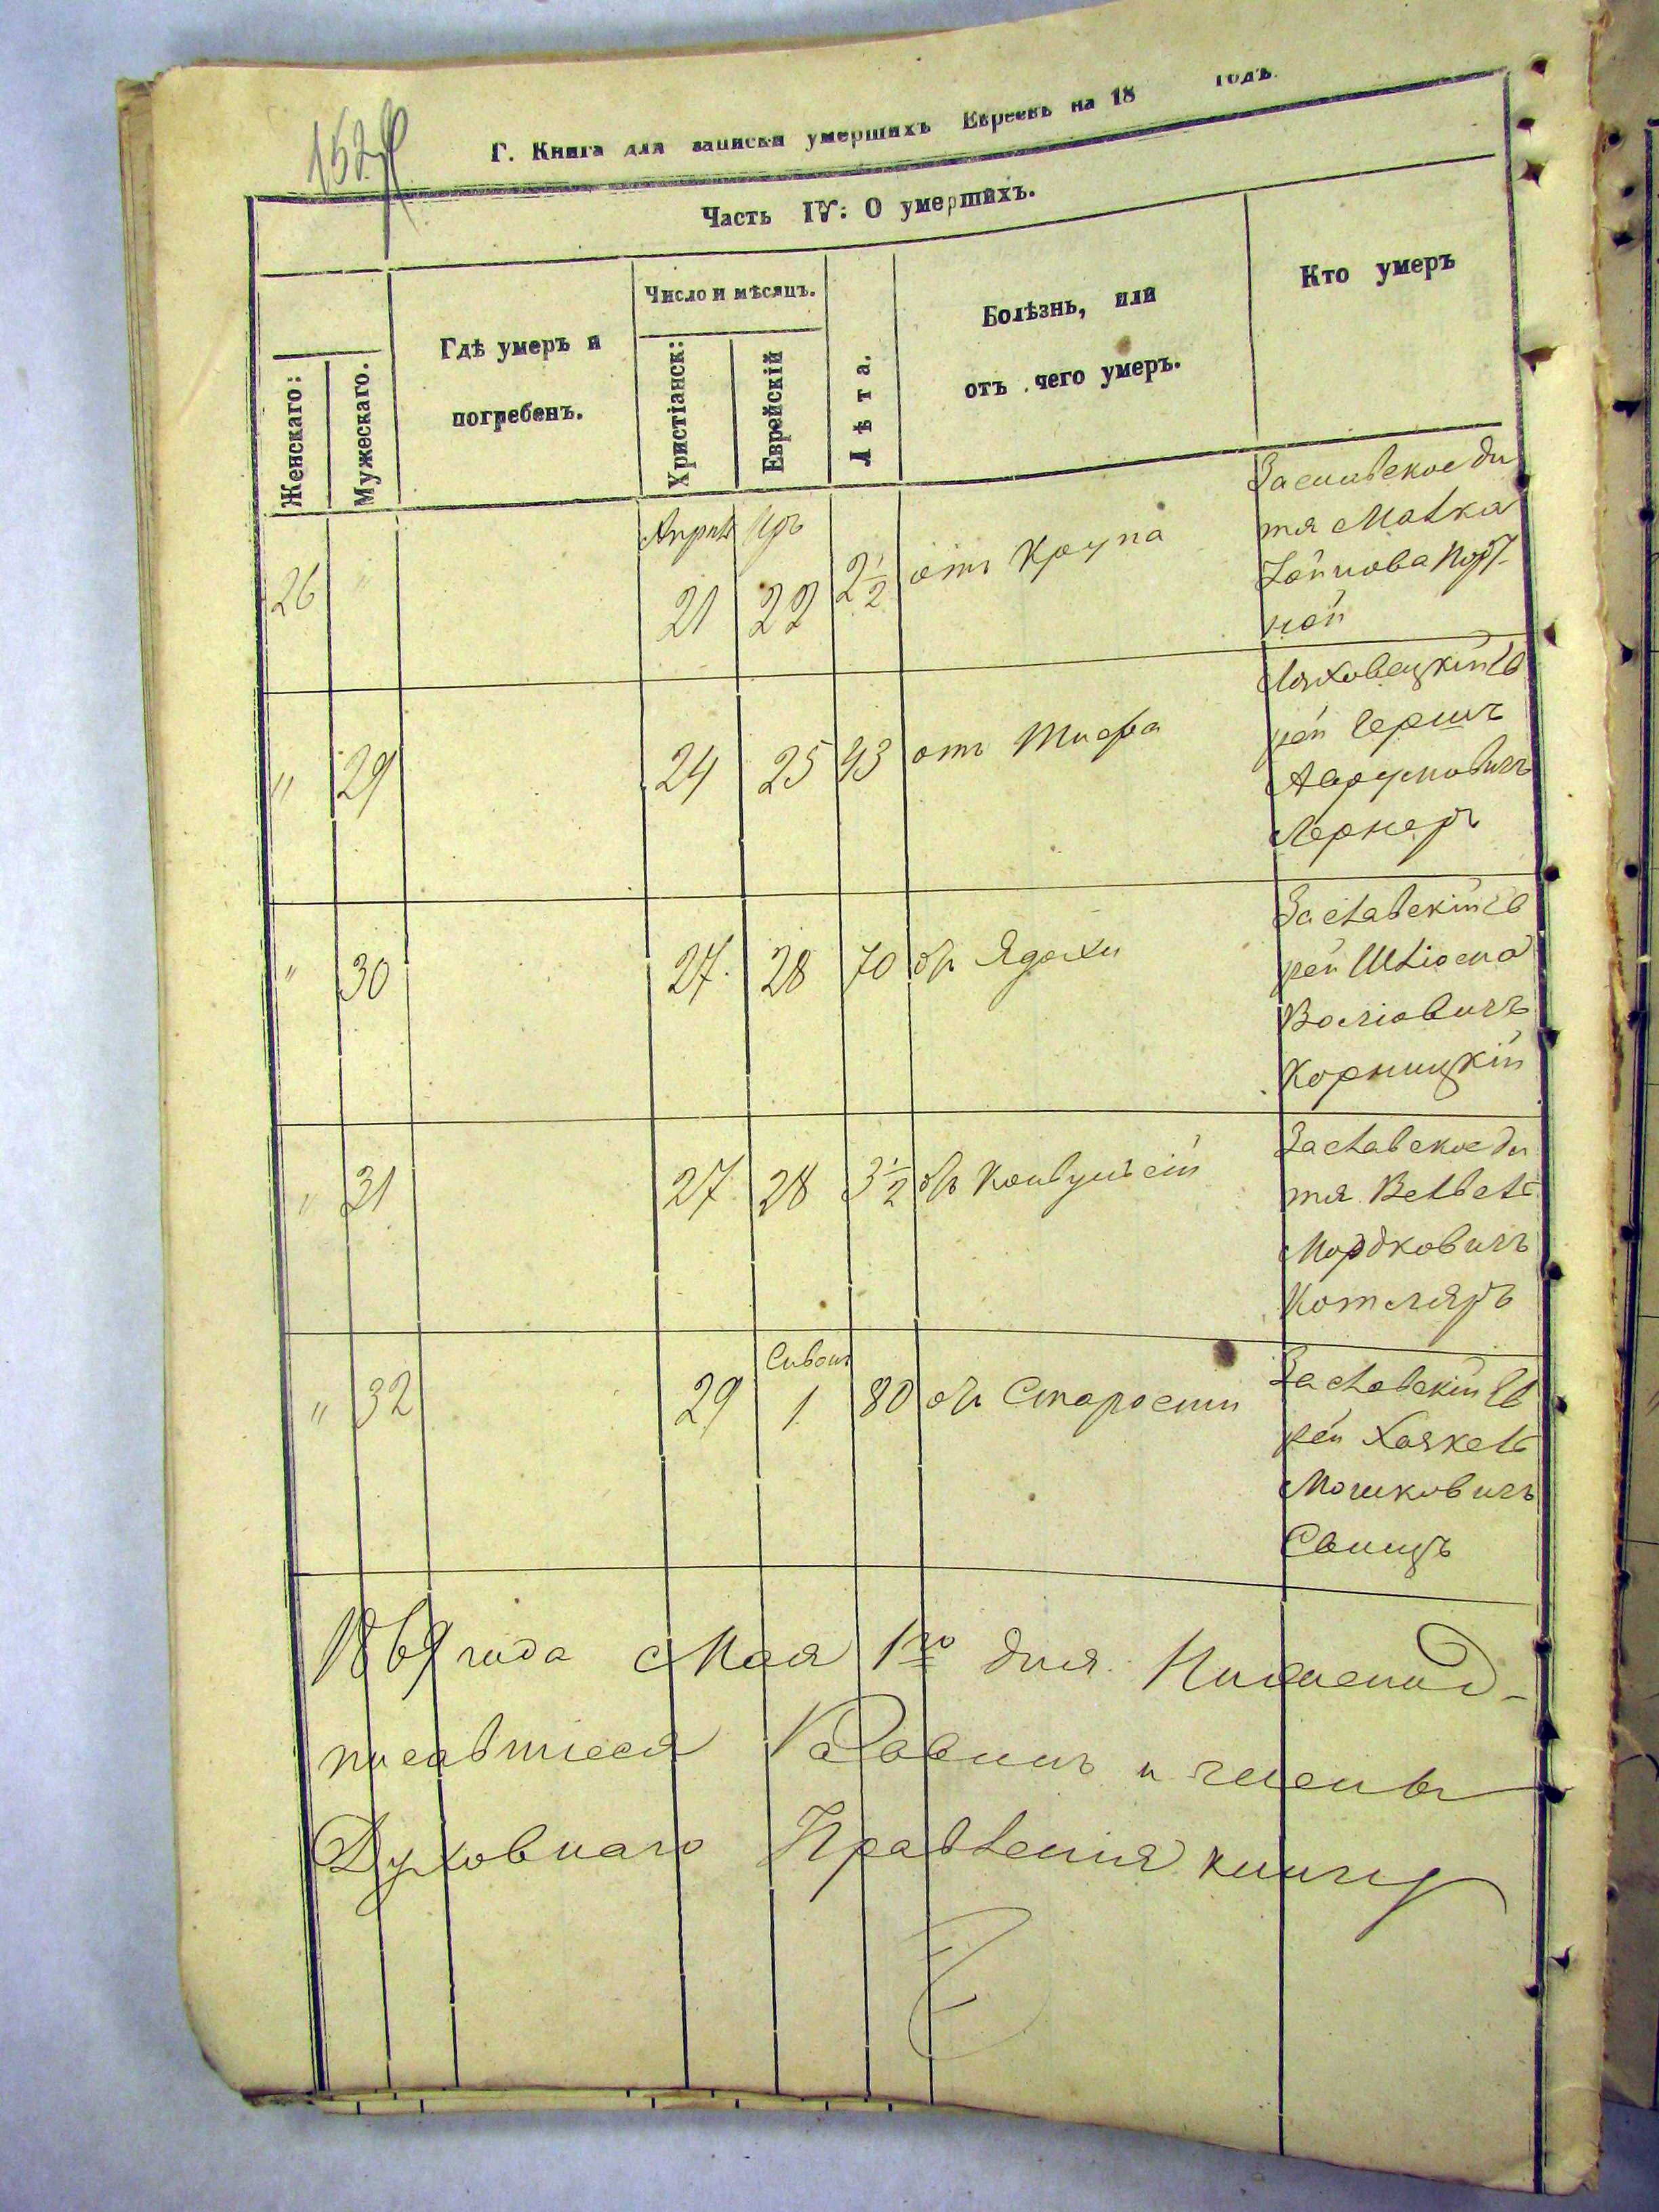 152
Г. Книга для записки умершихъ Евреевъ на 18 годъ.
Часть IV: О умершихъ.
Женскаго:
Мужескаго.
Гдѣ умеръ и
погребенъ.
Число и мѣсяцъ.
Христіанск:
Еврейскій
Лѣта.
Болѣзнь, или
отъ чего умеръ.
Кто умеръ
26 " Апрель 21 Иръ 22 2½ отъ Крупа
Заславское ди
тя Матка
ной
" 29 24 25 43 отъ Тифа
Ляховецкій Ев
рей Гершъ
Аврумовичъ
Лернеръ
" 30 27 28 70 отъ
Заславскій Ев
рей Шліома
Корницкій
" 31 27 28 3½ отъ Конвульсій
Заславское ди
тя Велвель
Мордковичъ
Котляръ
" 32 29 Сивонъ 1 80 отъ Старости
Заславскій Ев
рей Хаскель
Мошковичъ
1869 года Мая 1го дня Нижепод-
писавшіеся Раввинъ и члены
Духовнаго Правленія книгу